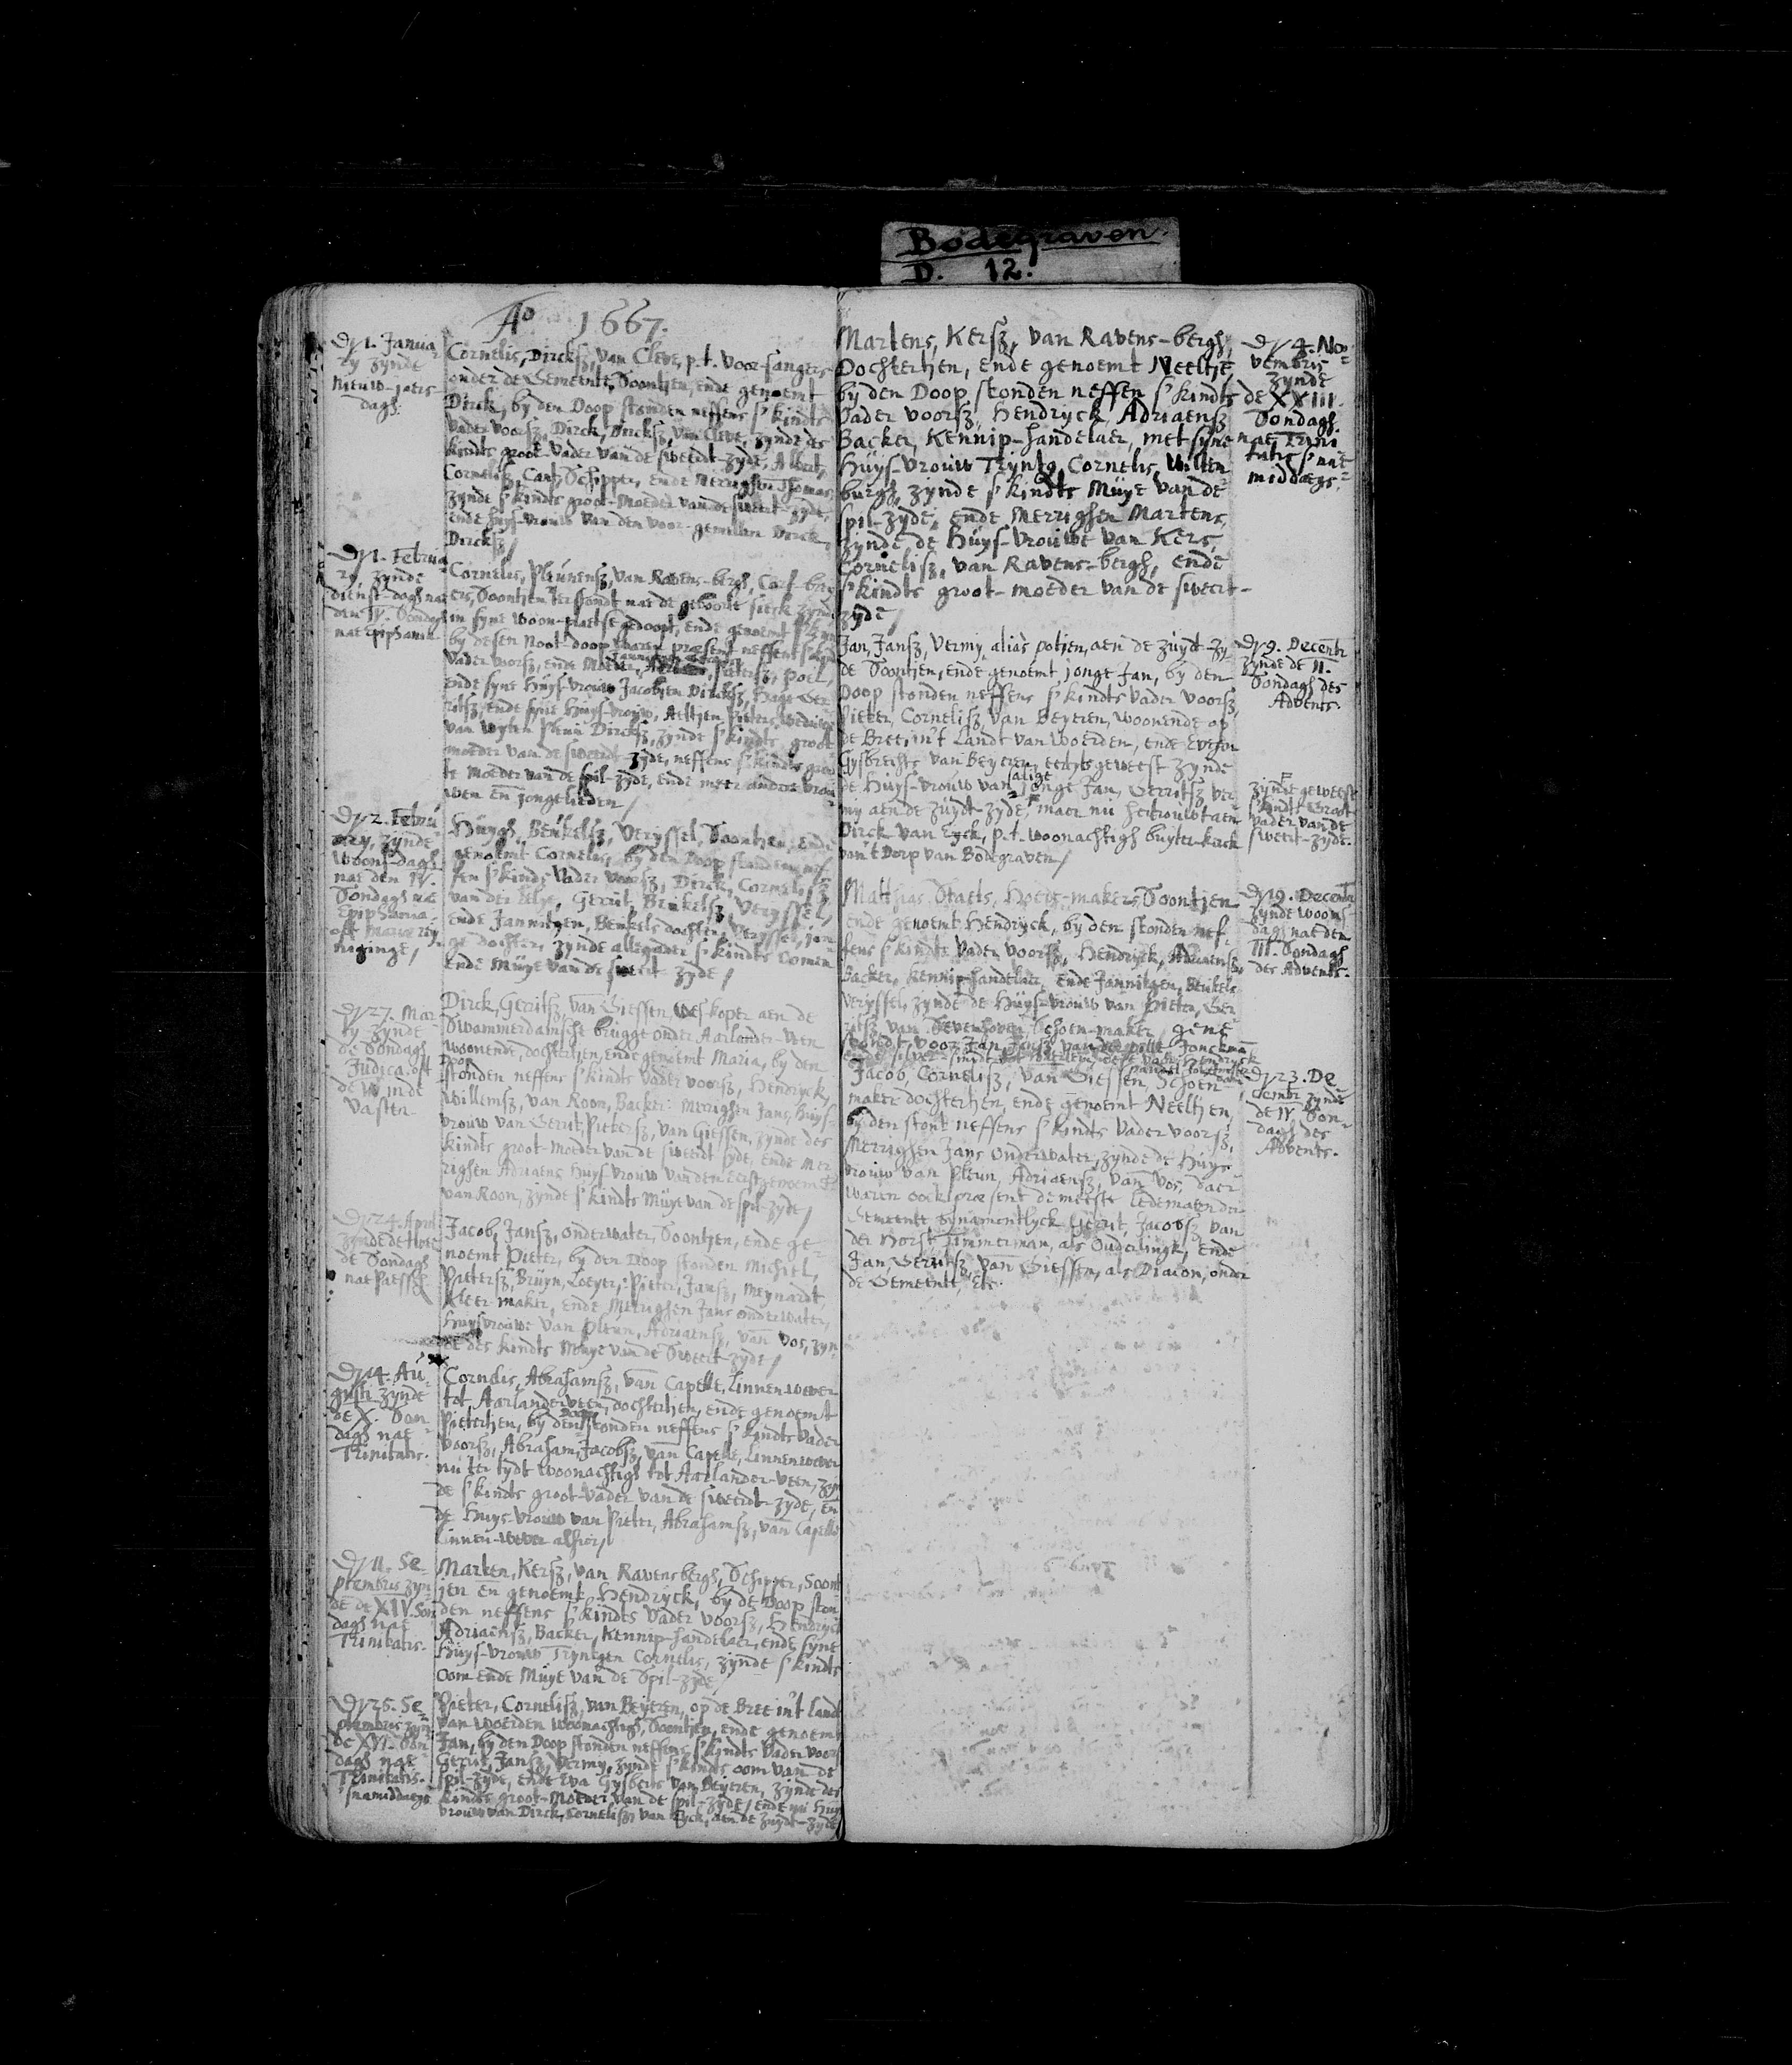 Bodegraven.
D. 12.
Ao 1667.
Dy 1. Janua
ry zynde
Nieuw-jaers
dagh.
Cornelis, Dircksz, van Cleve, p.t. voor-sanger
onder de Gemeente, Soontjen, ende genoemt
Dirck, by den Doop stonden neffens s'kindts
Vader voorsz, Dirck, Dircksz, van Cleve, zynde des
kindts groot-Vader van de sweerdt-zyde, Albert,
Cornelisz, Schipper, ende Merrighjen Thomas,
zynde s'kindts groot-Moeder van de sweert-zyde,
ende huys-vrouw van den voor-gemelten Dirck,
Dircksz/
Dy 1. Februa
ry, zynde
dienst-dagh nae
den IV. Sondagh
nae Epiphania
Cornelis, Pleunensz, van Ravens-bergh,
Soontjen terstondt nae de geboorte sieck zynde
in syne woon-plaetse gedoopt, ende genoemt
by desen Noot-doop waren praesent neffens s'kindts
Vader voorsz, ende Moeder, Pietersz, Poel,
ende syne Huys-vrouw Jacobjen Dircksz, Ger-
ritsz, ende syne Huys-vrouw, Aeltjen Pieters, Weduwe
van wylen Pleun Dircksz, zynde s'kindts groot
moeder van de sweerdt-zyde, neffens s'kindts groo
te Moeder van de spil-zyde, ende meer andere vrou
wen en jongelieden/
Dy 2. Febru
ary, zynde
Woons-dagh
nae den IV.
Sondagh nae
Epiphania,
oft Marie rey
niginge/
Huygh, Beukelsz, Veryssel, Soontjen, ende
genoemt Cornelis, by den Doop stonden nef
fen s'kindts Vader voorsz, Dirck, Cornelisz,
van der Gerrit, Beukelsz, Veryssel,
ende Jannitjen, Beukels dochter, Veryssel, jon
ge dochter, zynde allegader s'kindts Oomen
ende Müye van de sweert zyde/
Dy 27. Mar
ty zynde
de Sondagh
Judica oft
de V in de
vasten
Dirck, Gerritsz, van Giessen, aen de
Swammerdamsche brugge onder Aarlander-veen
woonende, dochterhen, ende genoemt Maria, by den
Doop
stonden neffens s'kindts Vader voorsz, Hendryck,
Willemsz, van Roon, Backer: Merrighen Jans, Huys-
vrouw van Gerrit, Pietersz, van Giessen, zynde des
kindts groot-Moeder van de sweerdt syde, ende Mer
righen Adriaens Huys-vrouw van den eerstgenoemde
van Roon, zynde s'kindts Müye van de spil-zyde/
Dy 24. April
zynde de twee
de Sondagh
nae Paesschen
Jacob, Jansz, Onderwater, Soontjen, ende ge-
noemt Pieter, by den Doop stonden Michiel,
Pietersz, Bruyn, Loeyer: Pieter, Jansz, Meynardt,
Kleer-maker, ende Merrighen Jans onderwater,
Huysvrouwe van Pleun, Adriaensz, van Vos, zyn-
de des kindts Muye van de Sweert-zyde/
Dy 14. Au
gusti zynde
de X. Son
dagh nae
Trinitatis.
Cornelis, Abrahamsz, van Capelle, Linnenwever
tot Aarlanderveen, dochterhen, ende genoemt
Pieterhen, by den Doop stonden neffens s'kindts Vader
voorsz, Abraham, Jacobsz, van Capelle, Linnenwever
nu ter tydt woonachtigh tot Aarlander-veen, zyn
de s'kindts groot-Vader van de sweerdt-zyde, en
de Huys-vrouw van Pieter, Abrahamsz, van Capelle
linnen-wever alhier/
Dy 11. Se
ptembris zyn
de de XIV. Son
dagh nae
Trinitatis.
Marten, Kersz, van Ravensbergh, Schipper, Soont
jen en genoemt Hendryck, by de Doop ston
den neffens s'kindts Vader voorsz, Hendryck
Adriaensz, Backer, Kennip-handelaer, ende syne
Huys-vrouw Tryntgen Cornelis, zynde s'kindts
Oom ende Müye van de Spil-zyde/
Dy 25. Se
ptembris zyn
de XVI. Son
dagh nae
Trinitatis.
snamiddaegs
Pieter, Cornelisz, van Beyeren, op de Bree in't land
van Woerden woonachtigh, Soontjen, ende genoemt
Jan, by den Doop stonden neffens s'kindts Vader voors
Gerrit, Jansz, Vermy, zynde s'kindts oom van de
spil-zyde, ende Eva Gysberts van Beyeren, zynde des
kindts groot-Moeder van de spil-zyde/ ende nu huys
vrouw van Dirck, Cornelisz, van Eyck, aen de zuydt-zyde
Martens, Kersz, van Ravens-bergh,
Dochterhen, ende genoemt Neeltje
by den Doop stonden neffen s'kindts
Vader voorsz, Hendryck, Adriaensz
Backer, Kennip-handelaer, met syne
Huys-vrouw Tryntg Cornelis, Wilten
burgh, zynde s'kindts Müye van de
spil-zyde, ende Merrighen Martens,
zynde de Huys-vrouwe van Kers,
Cornelisz, van Ravens-bergh, ende
s'kindts groot-moeder van de sweert-
zyde/
Dy 4. No
vembris
zynde
de XXIII.
Sondagh
nae Trini
tatis s'nae
middaegs.
Jan, Jansz, Vermy, alias potjen, aen de zuydt-zy-
de Soontjen, ende genoemt jonge Jan, by den
Doop stonden neffens s'kindts Vader voorsz,
Pieter, Cornelisz, van Beyeren, woonende op
de Bree, in't Landt van Woerden, ende
Gysbrechts van Beyeren, eertyts geweest zynde
salige
de Huys-vrouw van jonge Jan, Gerritsz Ver
my aen de zuydt-zyde, maer nu hertrouwt aen
Dirck van Eyck, p.t. woonachtigh buyten-kerck
van't Dorp van Bodegraven/
Dy 9. Decembr
zynde de II.
Sondagh des
Advents.
zynde geweest
s'kindts Groot
Vader van de
sweert-zyde.
Matthias, Staets, Hoedt-maker, Soontjen
ende genoemt Hendryck, by den stonden nef-
fens s'kindts Vader voorsz, Hendryck, Adriaensz,
Backer, Kennip-handelaer, ende Jannitgen, Beukels
Veryssel, zynde de Huys-vrouw van Pieter, Ger
ritsz van Sevenhoven, Schoen-maker,
voor Jan, Jansz, van Jonckman
Dy 19. Decembr
zynde Woons
dagh nae den
III. Sondagh
des Advents.
Jacob, Cornelisz, van Giessen, Schoen-
maker dochterhen, ende genoemt Neelthen,
by den stont neffens s'kindts Vader voorsz,
Merrighen Jans Onderwater, zynde de Huys-
vrouw van Pleun, Adriaensz, van Vos, daer
waren oock praesent de meeste Ledematen der
Gemeente bynamentlyck Gerrit, Jacobsz van
der Horst Timmerman, als Ouderlingk, ende
Jan, Gerritsz, van Giessen, als Diacon, onder
de Gemeente, Etc.
Dy 23. De
cembr zynde
de IV. Son-
dagh des
Advents.